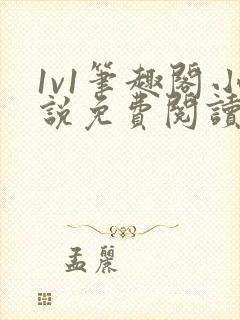 1v1筆趣閣.小
說免費閱讀
孟麗